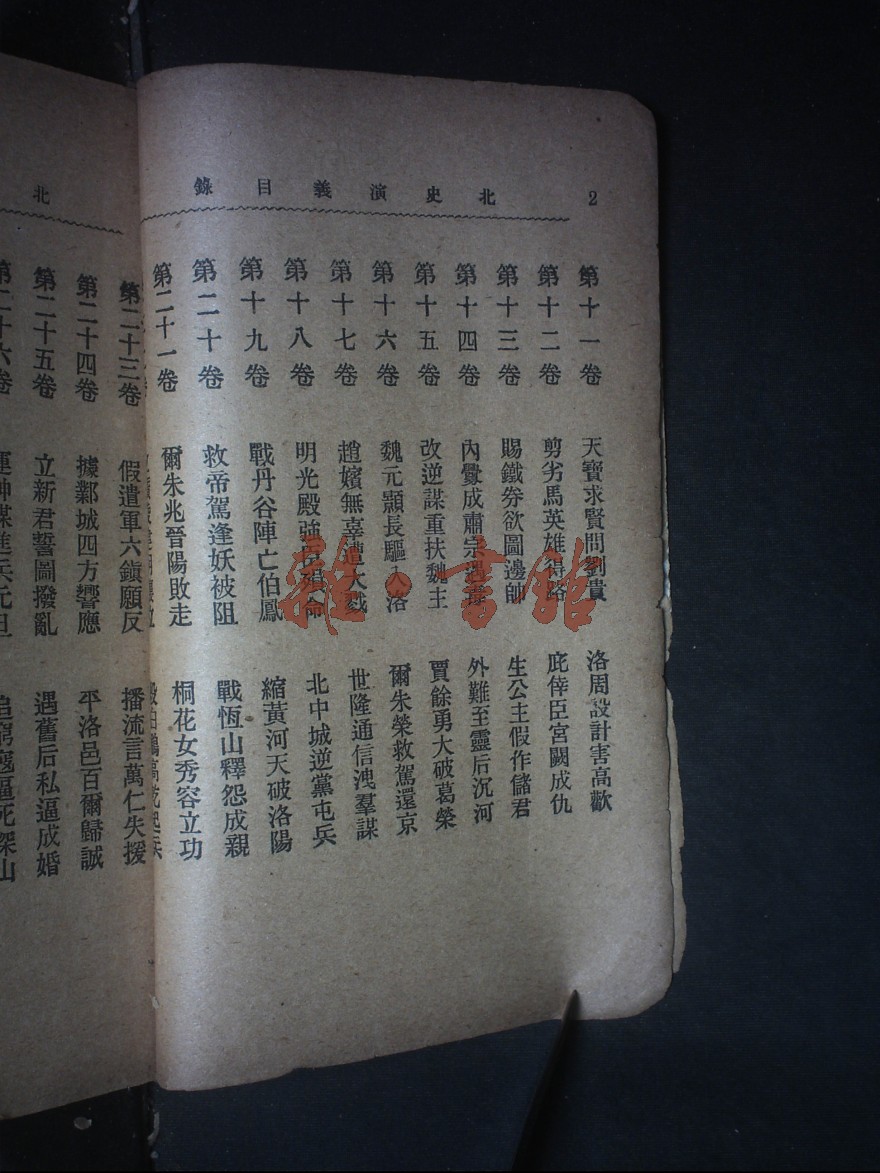 北史演義目錄 2
第十一卷 天寶求賢問劉貴 洛周設計害高歡
第十二卷 剪劣馬英雄得路 庇倖臣宮闕成仇
第十三卷 賜鐵券欲圖邊帥 生公主假作儲君
第十四卷 內釁成肅宗遇 外難至靈后沉河
第十五卷 改逆謀重扶魏主 賈餘勇大破葛榮
第十六卷 魏元顥長驅入洛 爾朱榮救駕還京
第十七卷 趙嬪無辜遭大戮 世隆通信洩羣謀
第十八卷 明光殿強 命 北中城逆黨屯兵
第十九卷 戰丹谷陣亡伯鳳 縮黃河天破洛陽
第二十卷 救帝駕逢妖被阻 戰恆山釋怨成親
第二十一卷 爾朱兆晉陽敗走 桐花女秀容立功
北
第二十三卷 假遣軍六鎮願反 播流言萬仁失援
第二十四卷 據鄴城四方響應 平洛邑百爾歸誠
第二十五卷 立新君誓圖撥亂 遇舊后私逼成婚
第二十六卷 運神謀進兵元旦 追窮寇逼死深山
雜·書館